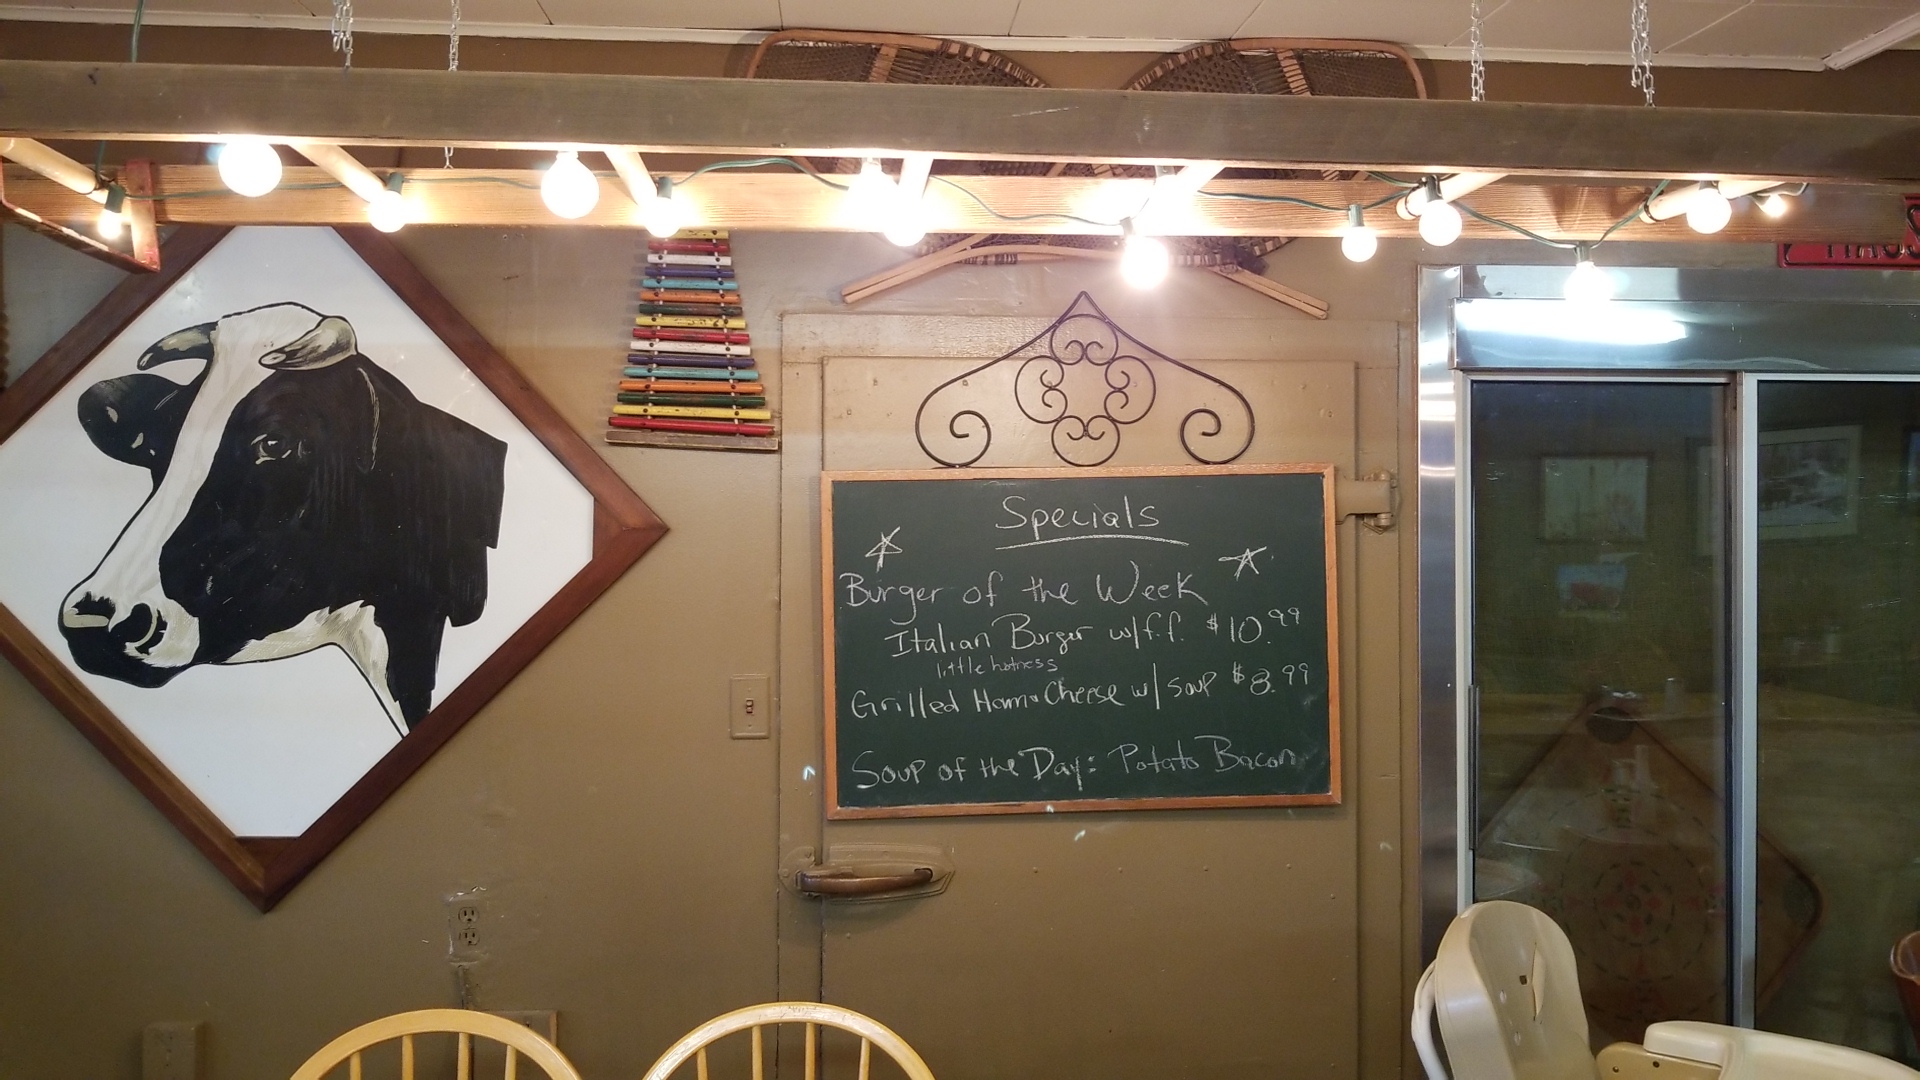 Specials
Burger of the Week
Italian Burger w/f.f. $10.99
little hotness
Grilled Ham & Cheese w/ soup $8.99
Soup of the Day: Potato Bacon